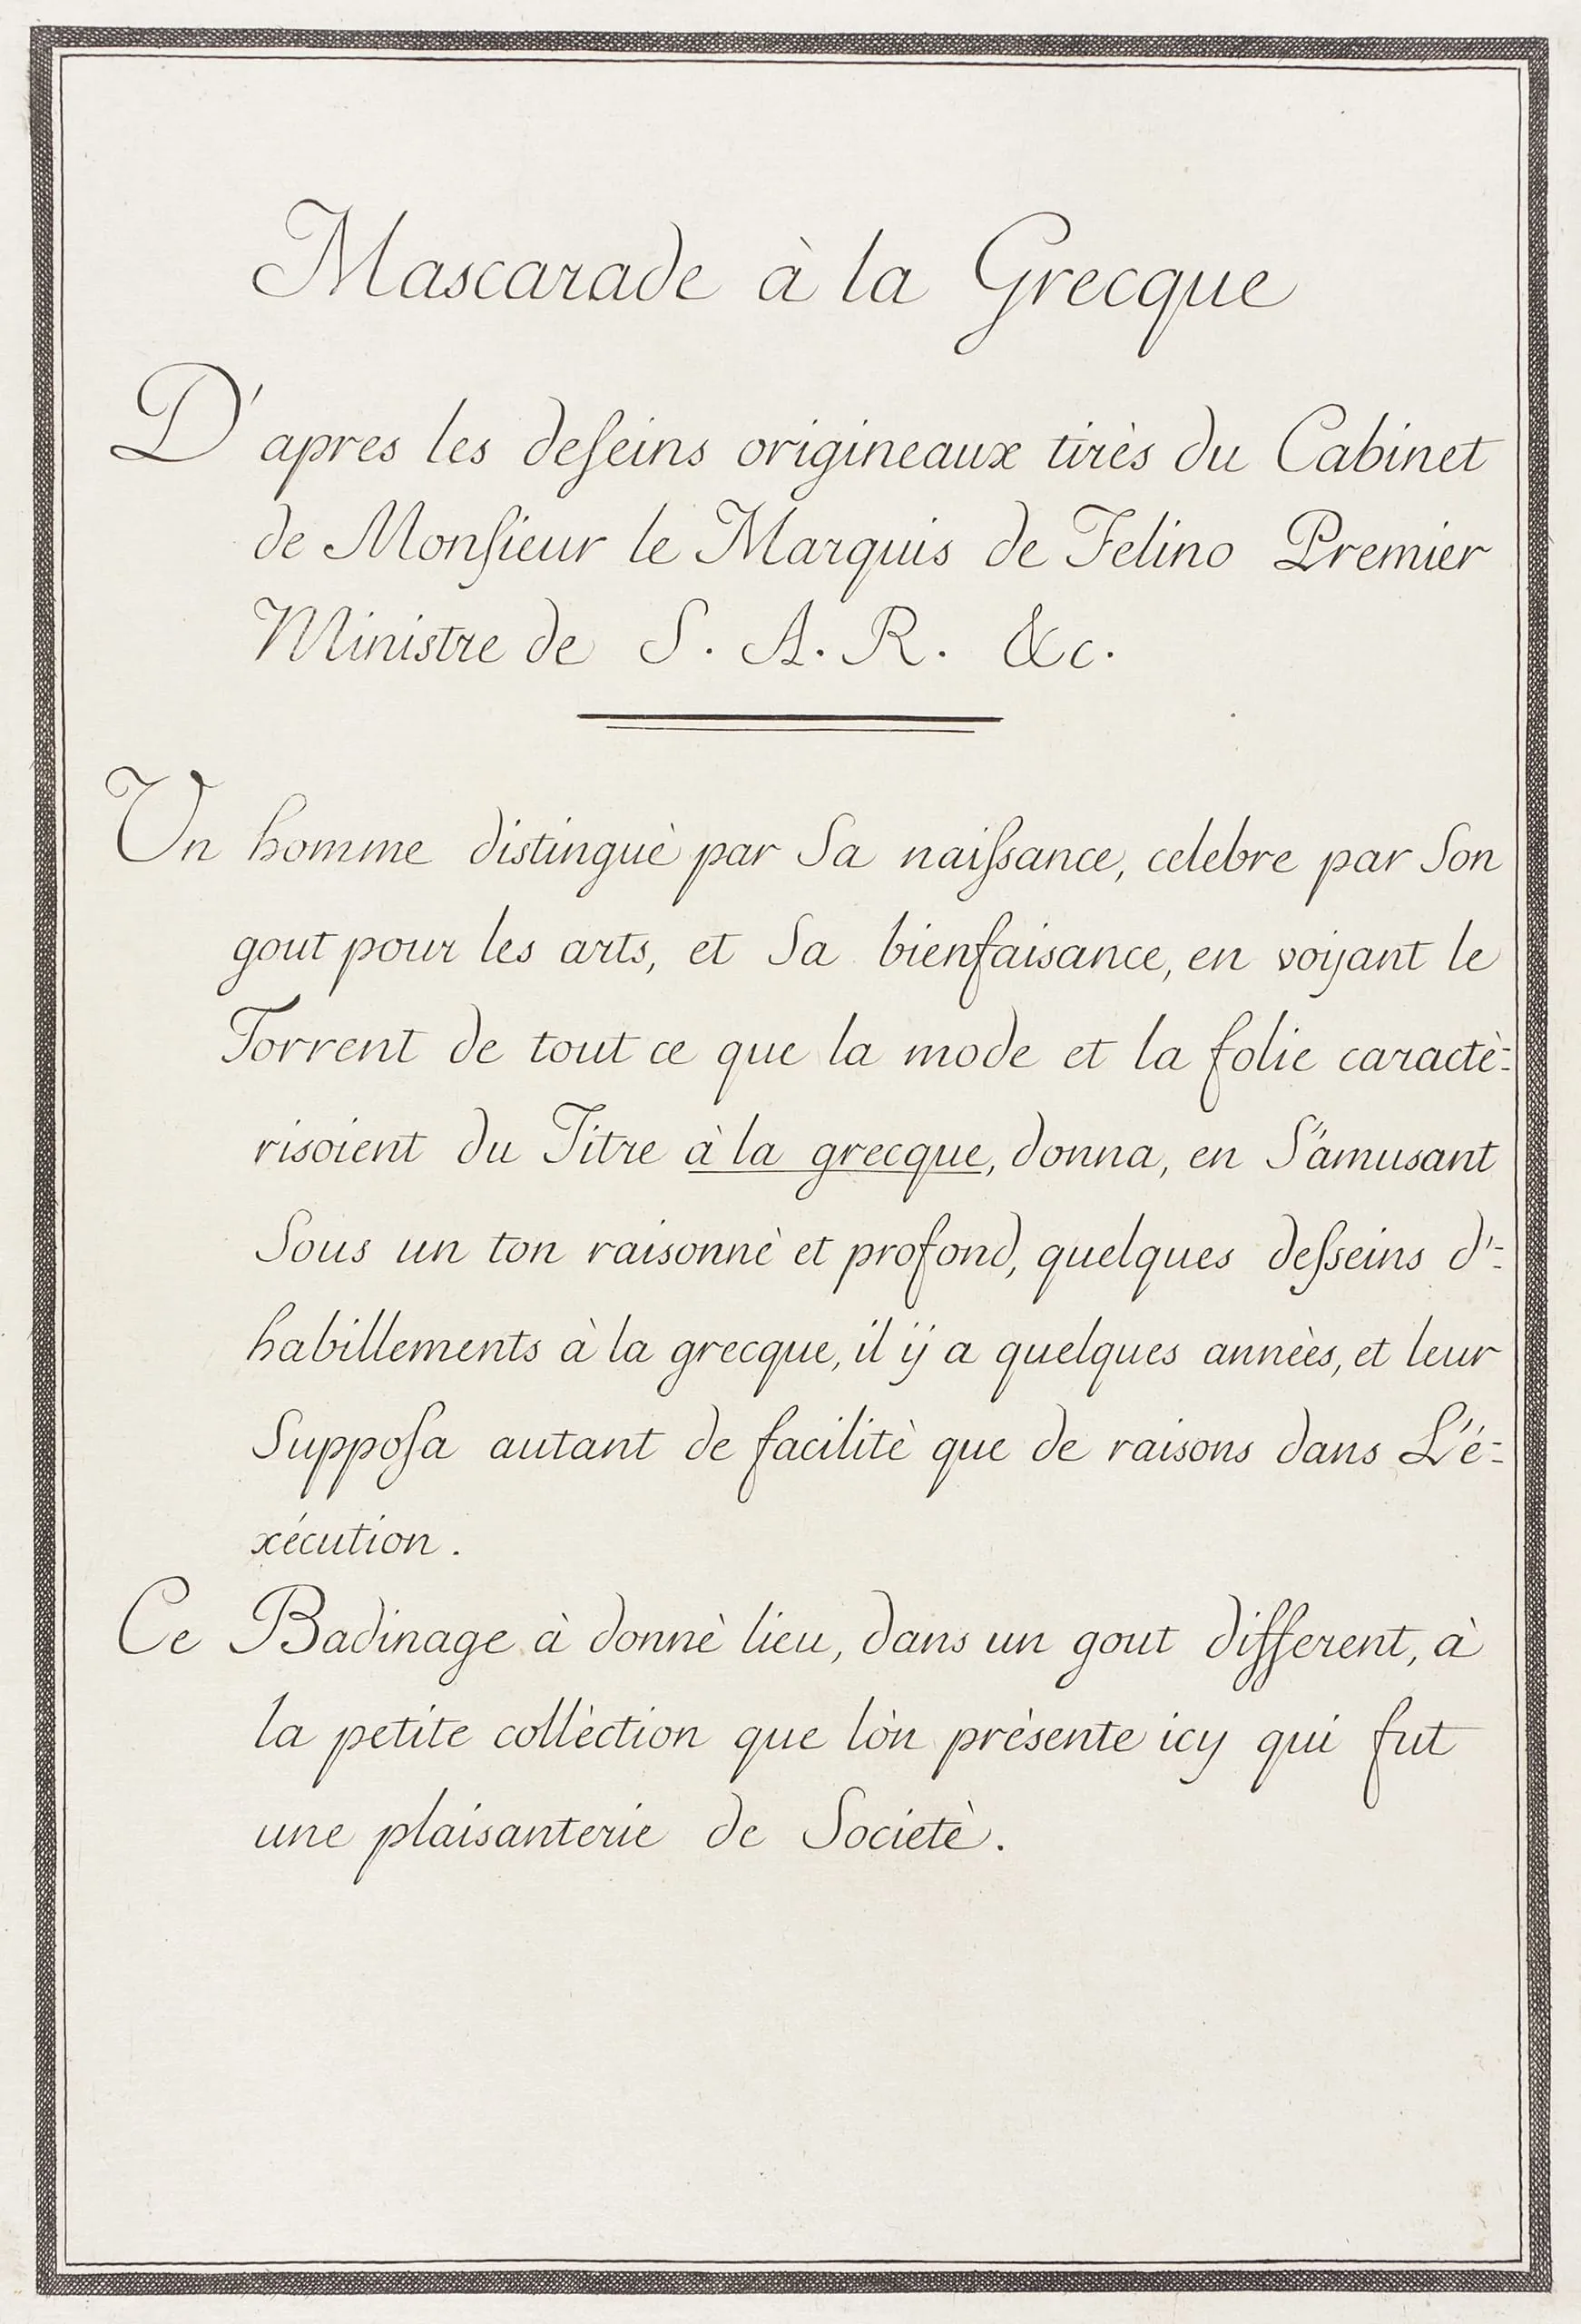 Mascarade à la Grecque
D'apres les deſeins origineaux tirès du Cabinet
de Monſieur le Marquis de Felino Premier
Ministre de S. A. R. &c.
Un homme distinguè par Sa naiſsance, celebre par Son
gout pour les arts, et Sa bienfaisance, en voÿant le
Torrent de tout ce que la mode et la folie caractè=
risoient du Titre à la grecque, donna, en S'amusant
Sous un ton raisonnè et profond, quelques deſseins d'=
habillements à la grecque, il ÿ a quelques annèes, et leur
Suppoſa autant de facilitè que de raisons dans L'é=
xécution.
Ce Badinage à donnè lieu, dans un gout different, à
la petite collèction que lòn prèsente icy qui fut
une plaisanterie de Societè.